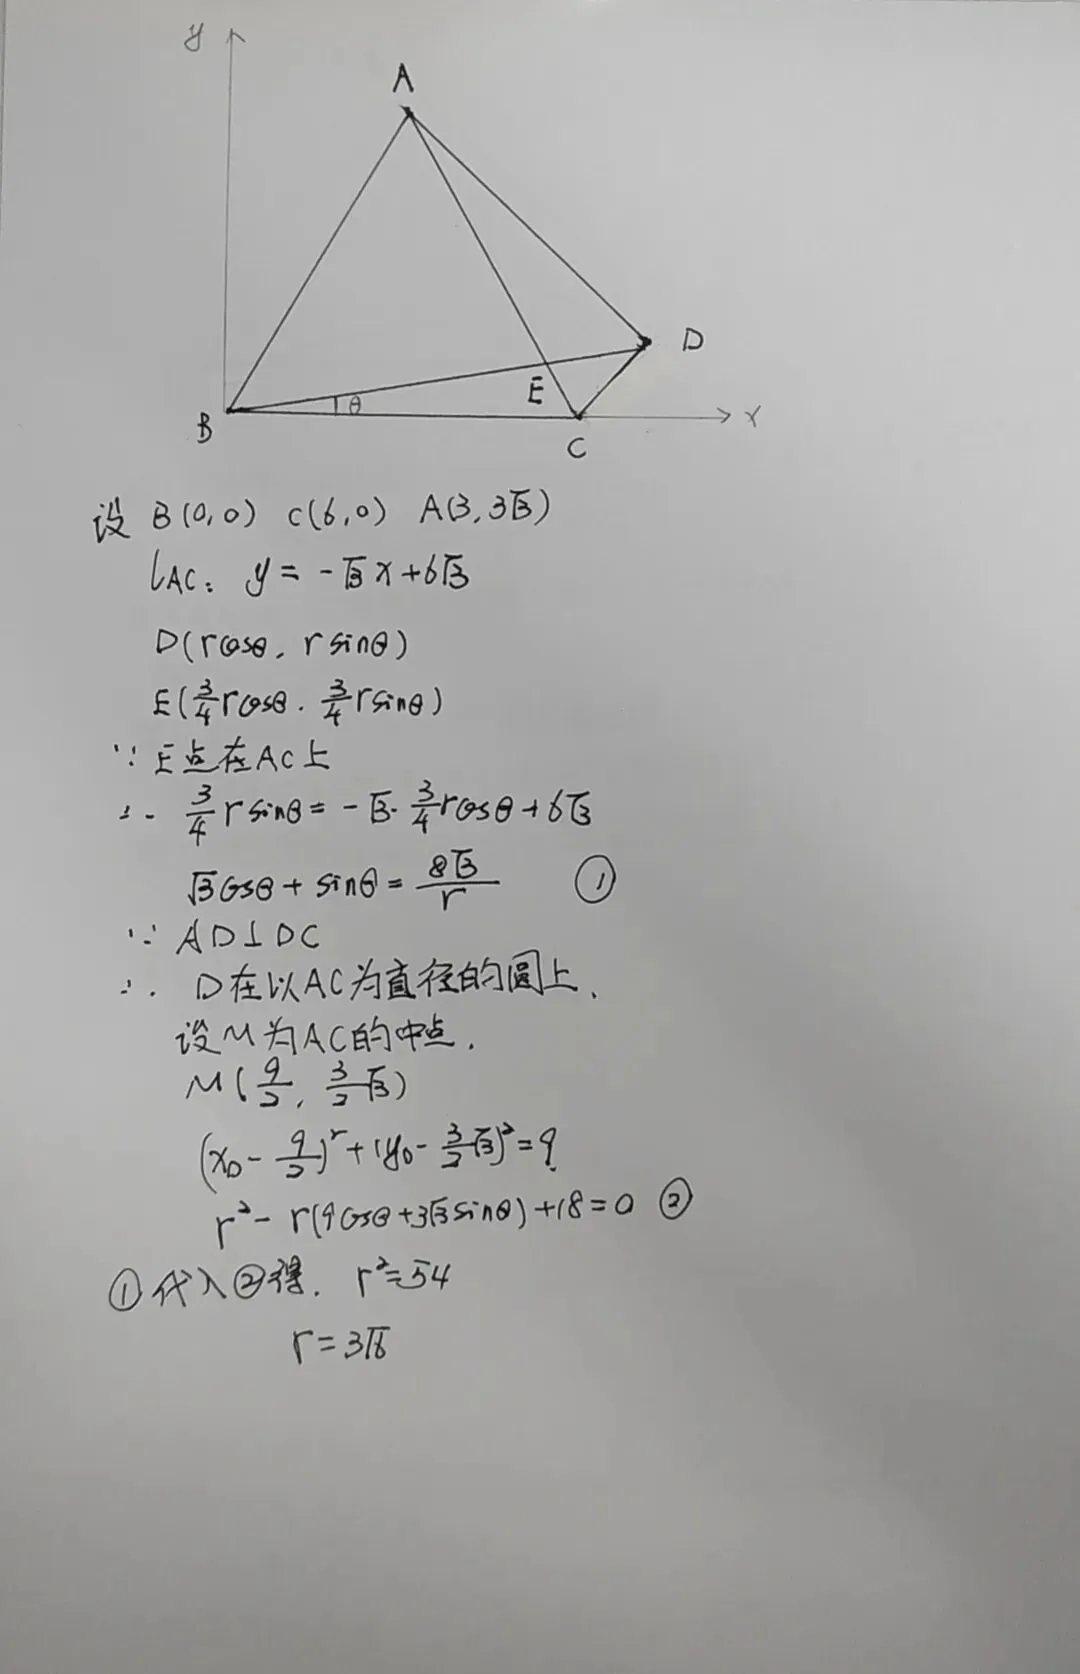 y
A
D
E
θ
B
C
x
设 B(0,0) C(6,0) A(3,3√3)
l_AC: y = -√3x+6√3
D(rcosθ, rsinθ)
E(3/4 rcosθ, 3/4 rsinθ)
∵ E点在AC上
∴ 3/4 rsinθ = -√3·3/4 rcosθ+6√3
√3cosθ+sinθ = 8√3/r ①
∵ AD⊥DC
∴ D在以AC为直径的圆上.
设M为AC的中点.
M(9/2, 3/2√3)
(x_D - 9/2)²+(y_D - 3/2√3)²=9
r² - r(9cosθ+3√3sinθ)+18=0 ②
①代入②得. r²=54
r=3√6